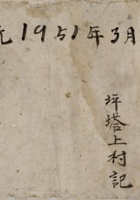 元1951年3月
坪塔上村記